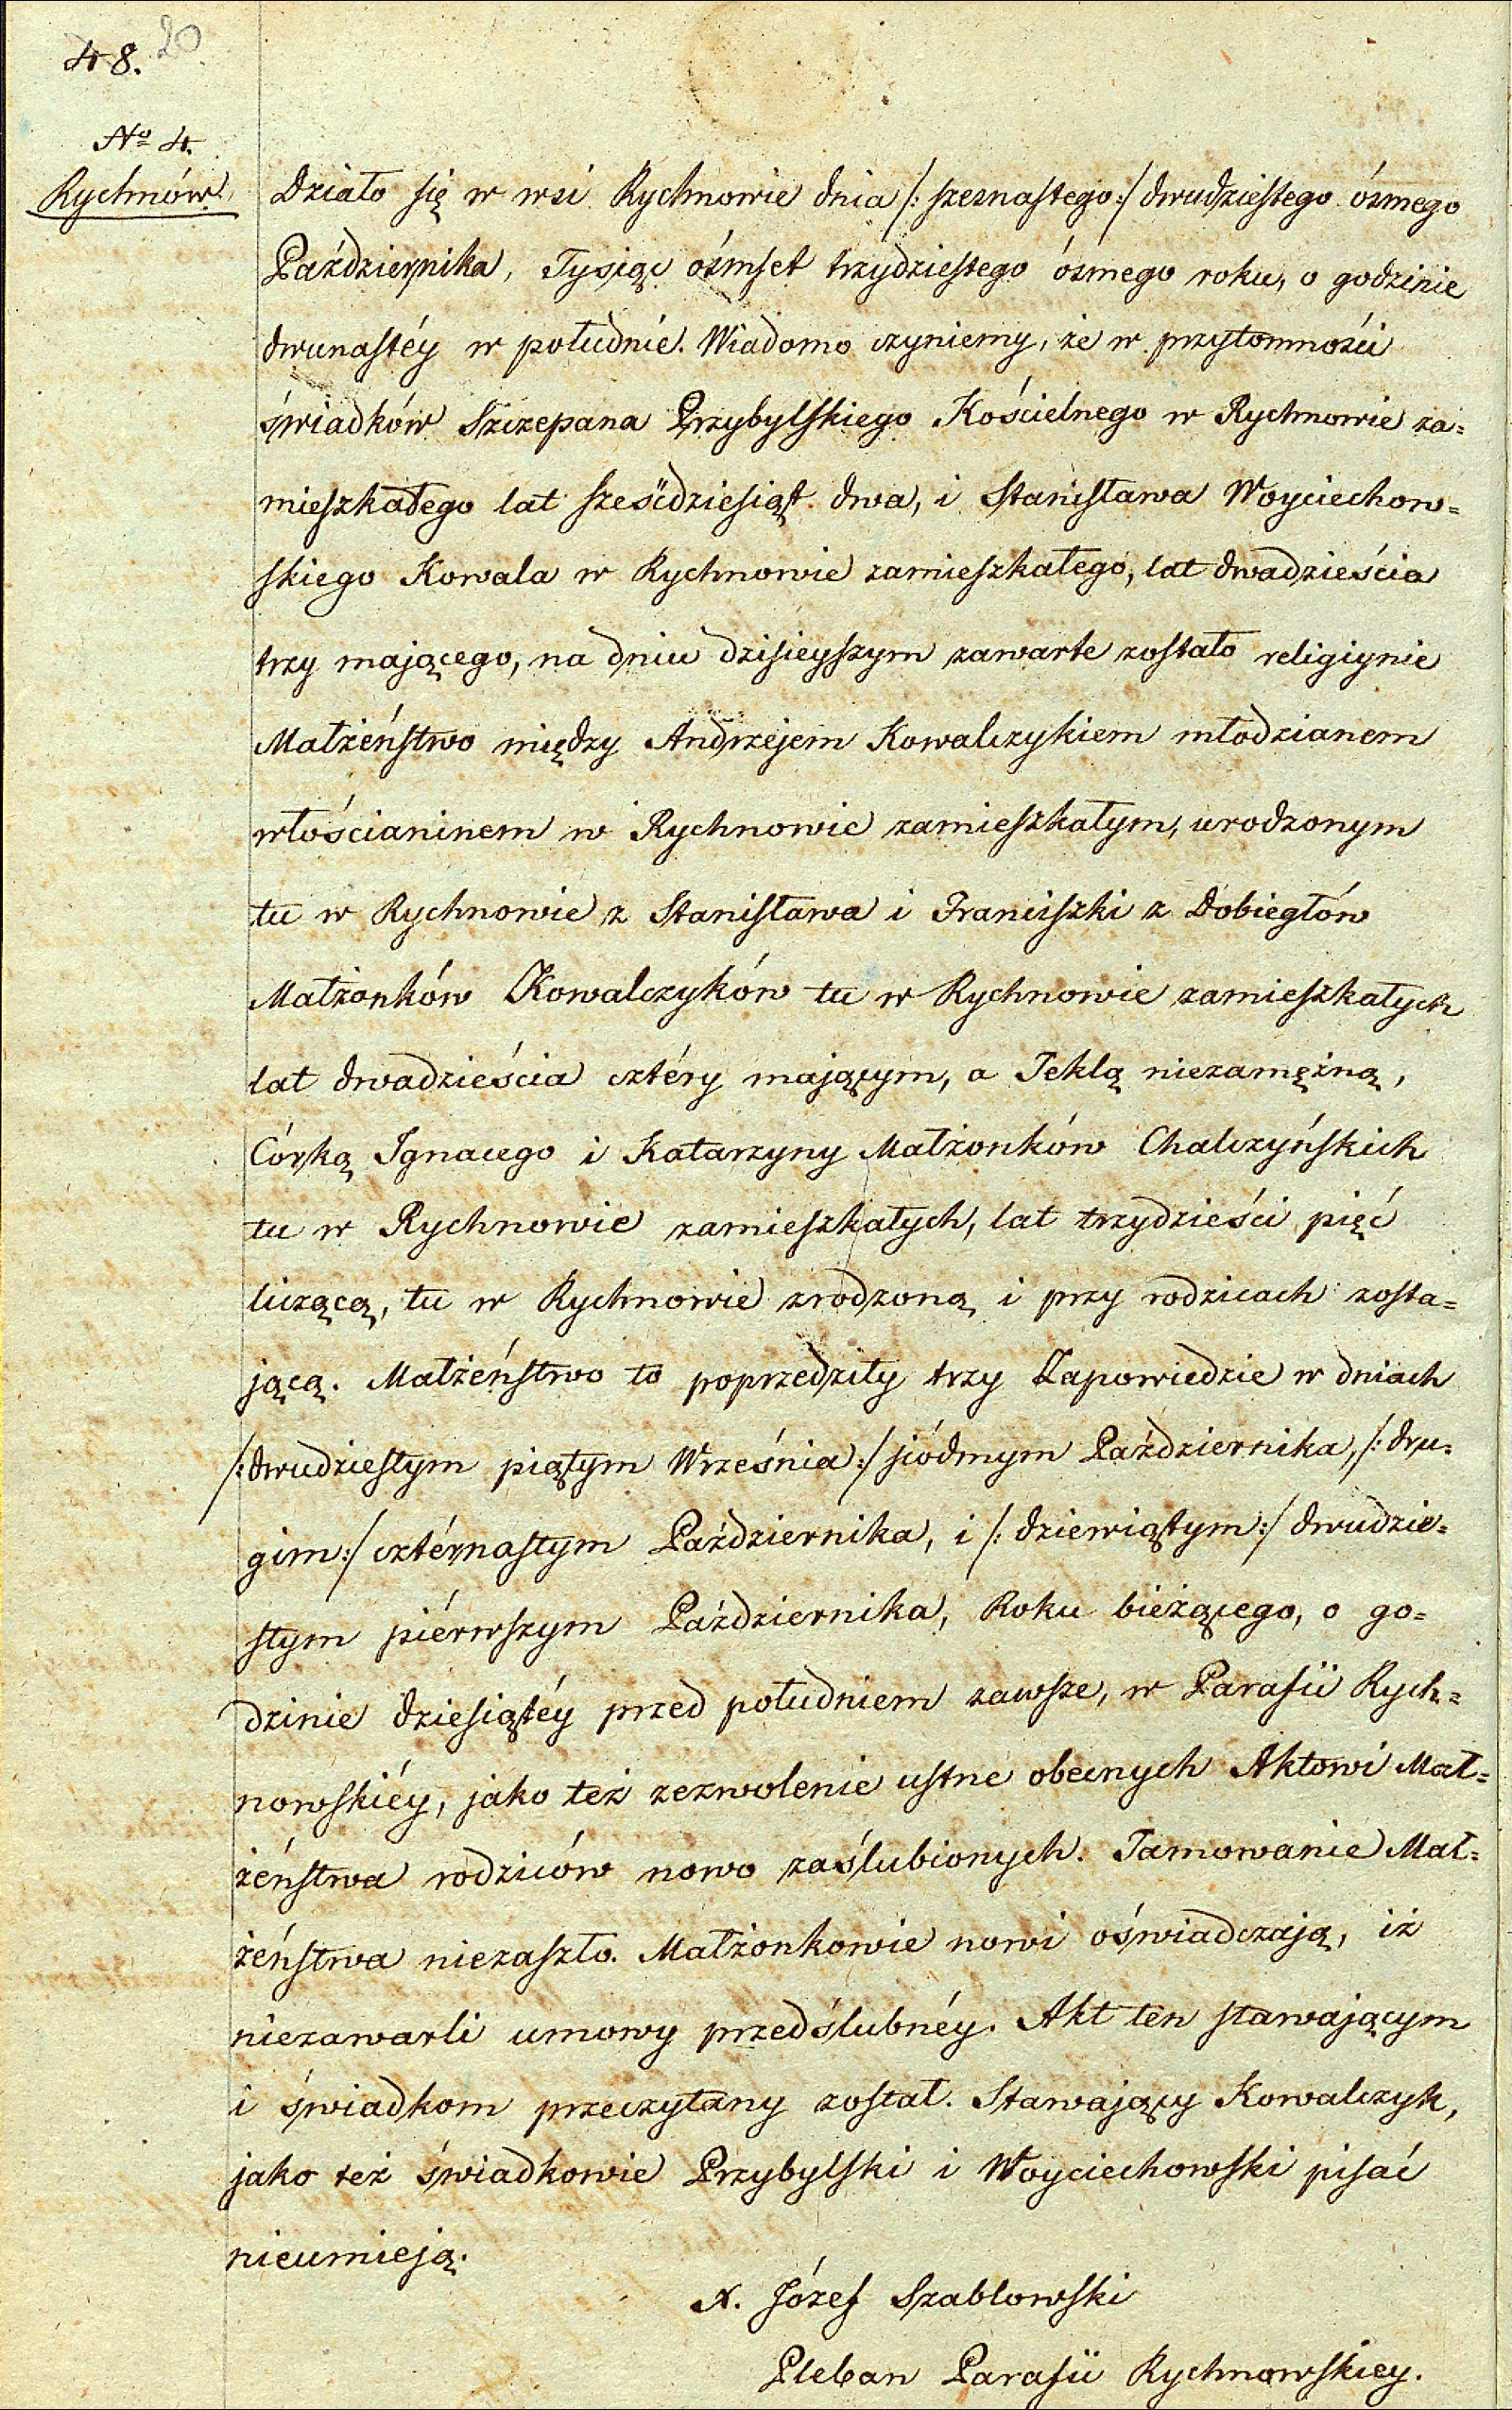 48. 20
No 4.
Rychnów.
Działo się w wsi Rychnowie dnia /: szesnastego :/ dwudziestego ósmego
Października, Tysiąc ośmset trzydziestego ósmego roku, o godzinie
dwunastéy w południe. Wiadomo czyniemy, że w przytomności
świadków Szczepana Przybylskiego Kościelnego w Rychnowie za=
mieszkałego lat sześćdziesiąt dwa, i Stanisława Woyciechow=
skiego Kowala w Rychnowie zamieszkałego, lat dwadzieścia
trzy mającego, na dniu dzisieyszym zawarte zostało religiynie
Małżeństwo między Andrzejem Kowalczykiem młodzianem
włościaninem w Rychnowie zamieszkałym, urodzonym
tu w Rychnowie z Stanisława i Franciszki z Dobiegłów
Małżonków Kowalczyków tu w Rychnowie zamieszkałych
lat dwadzieścia cztéry mającym, a Teklą niezamężną,
Córką Ignacego i Katarzyny Małżonków Chalczyńskich
tu w Rychnowie zamieszkałych, lat trzydzieści pięć
liczącą, tu w Rychnowie zrodzoną i przy rodzicach zosta=
jącą. Małżeństwo to poprzedziły trzy Zapowiedzie w dniach
/: dwudziestym piątym Września :/ siódmym Października, /: dru=
gim :/ cztérnastym Października, i /: dziewiątym :/ dwudzie=
stym piérwszym Października, Roku bieżącego, o go=
dzinie dziesiątéy przed południem zawsze, w Parafii Rych=
nowskiéy, jako też zezwolenie ustne obecnych Aktowi Mał=
żeństwa rodziców nowo zaślubionych. Tamowanie Mał=
żeństwa niezaszło. Małżonkowie nowi oświadczają, iż
niezawarli umowy przedślubnéy. Akt ten stawającym
i świadkom przeczytany został. Stawający Kowalczyk,
jako też świadkowie Przybylski i Woyciechowski pisać
nieumieją.
X. Józef Szablowski
Pleban Parafii Rychnowskiey.